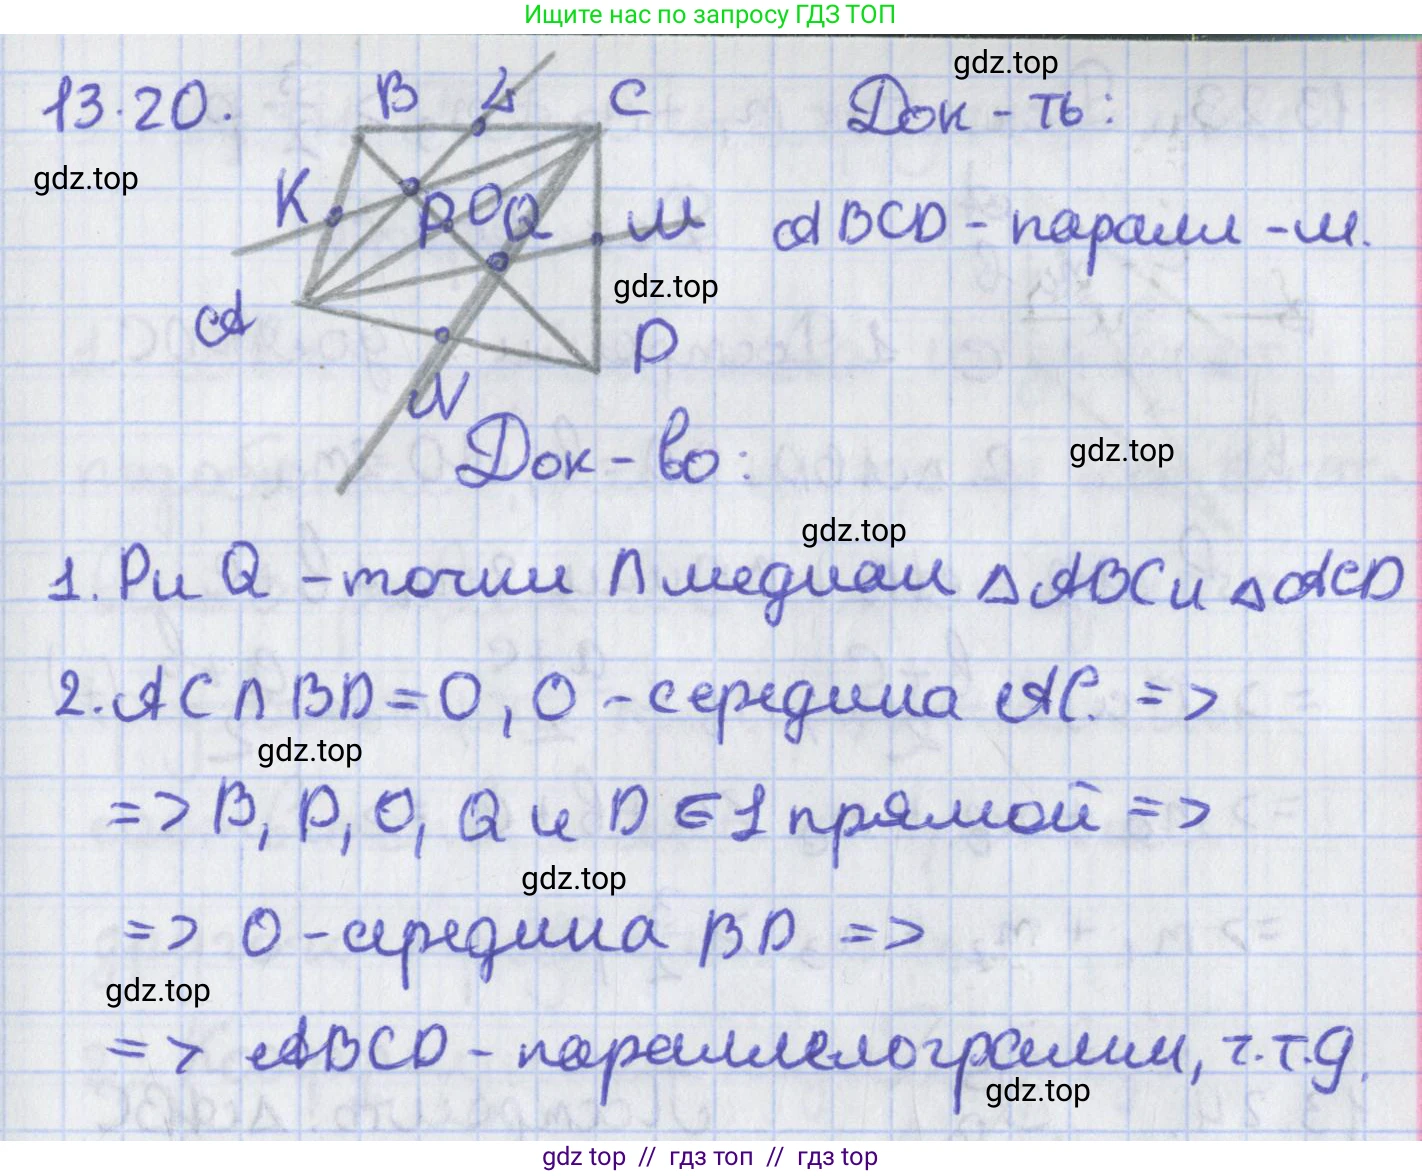 Ищите нас по запросу ГДЗ ТОП
gdz.top
13.20.
B L C
Док-ть:
gdz.top
K P O Q M
ABCD - паралл-м.
gdz.top
A D
N
Док-во:
gdz.top
gdz.top
1. P и Q - точки ∩ медиан △ABC и △ACD
2. AC ∩ BD = O, O - середина AC. =>
gdz.top
=> B, P, O, Q и D ∈ 1 прямой =>
gdz.top
=> O - середина BD =>
gdz.top
=> ABCD - параллелограмм, ч.т.д.
gdz.top
gdz top // гдз топ // гдз top